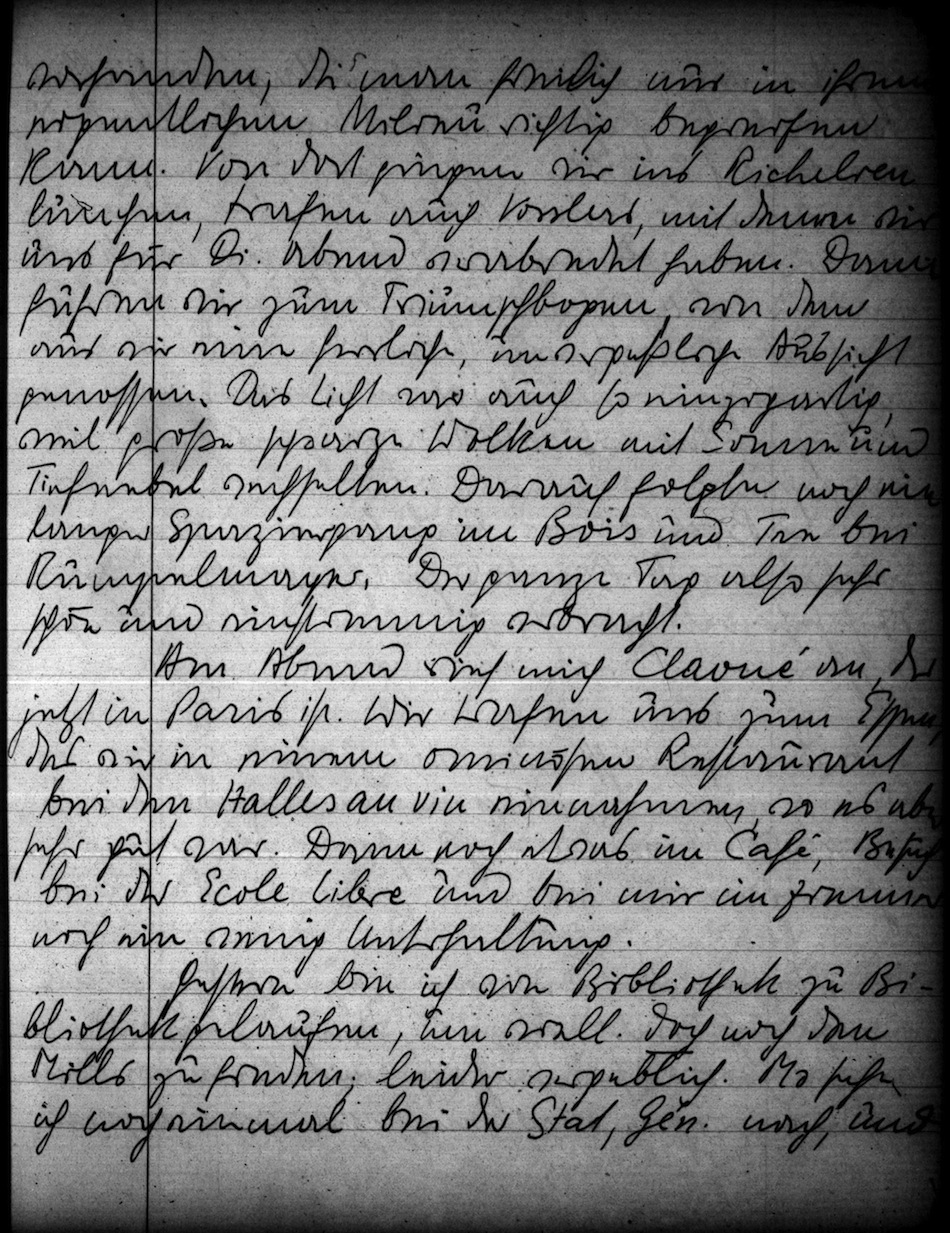 vorhanden, die man freilich nur in ihrem
eigentlichen Milieu richtig begreifen
kann. Von dort gingen wir ins Richelieu
lunchen, trafen auch Vosslers, mit denen wir
uns für Di. abend verabredet haben. Dann
fuhren wir zum Triumpfbogen, von dem
aus wir eine herrliche, unvergeßliche Aussicht
genossen. Das Licht war auch so einzigartig,
weil große schwarze Wolken mit Sonne und
Tiefnebel wechselten. Darauf folgte noch ein
langer Spaziergang im Bois und Tee bei
Rumpelmayer. Der ganze Tag also sehr
schön und einstimmig verbracht.
Am Abend rief mich Claoué an, der
jetzt in Paris ist. Wir trafen uns zum Essen,
das wir in einem ominösen Restaurant
bei den Halles au vin einnahmen, wo es aber
sehr gut war. Dann noch etwas im Café, Besuch
bei der Ecole Libre und bei mir im Zimmer
noch ein wenig Unterhaltung.
Gestern bin ich von Bibliothek zu Bi-
bliothek gelaufen, um evell. doch noch den
Mills zu finden; leider vergeblich. Mo sehe
ich noch einmal bei der Stat. Gén. nach, und